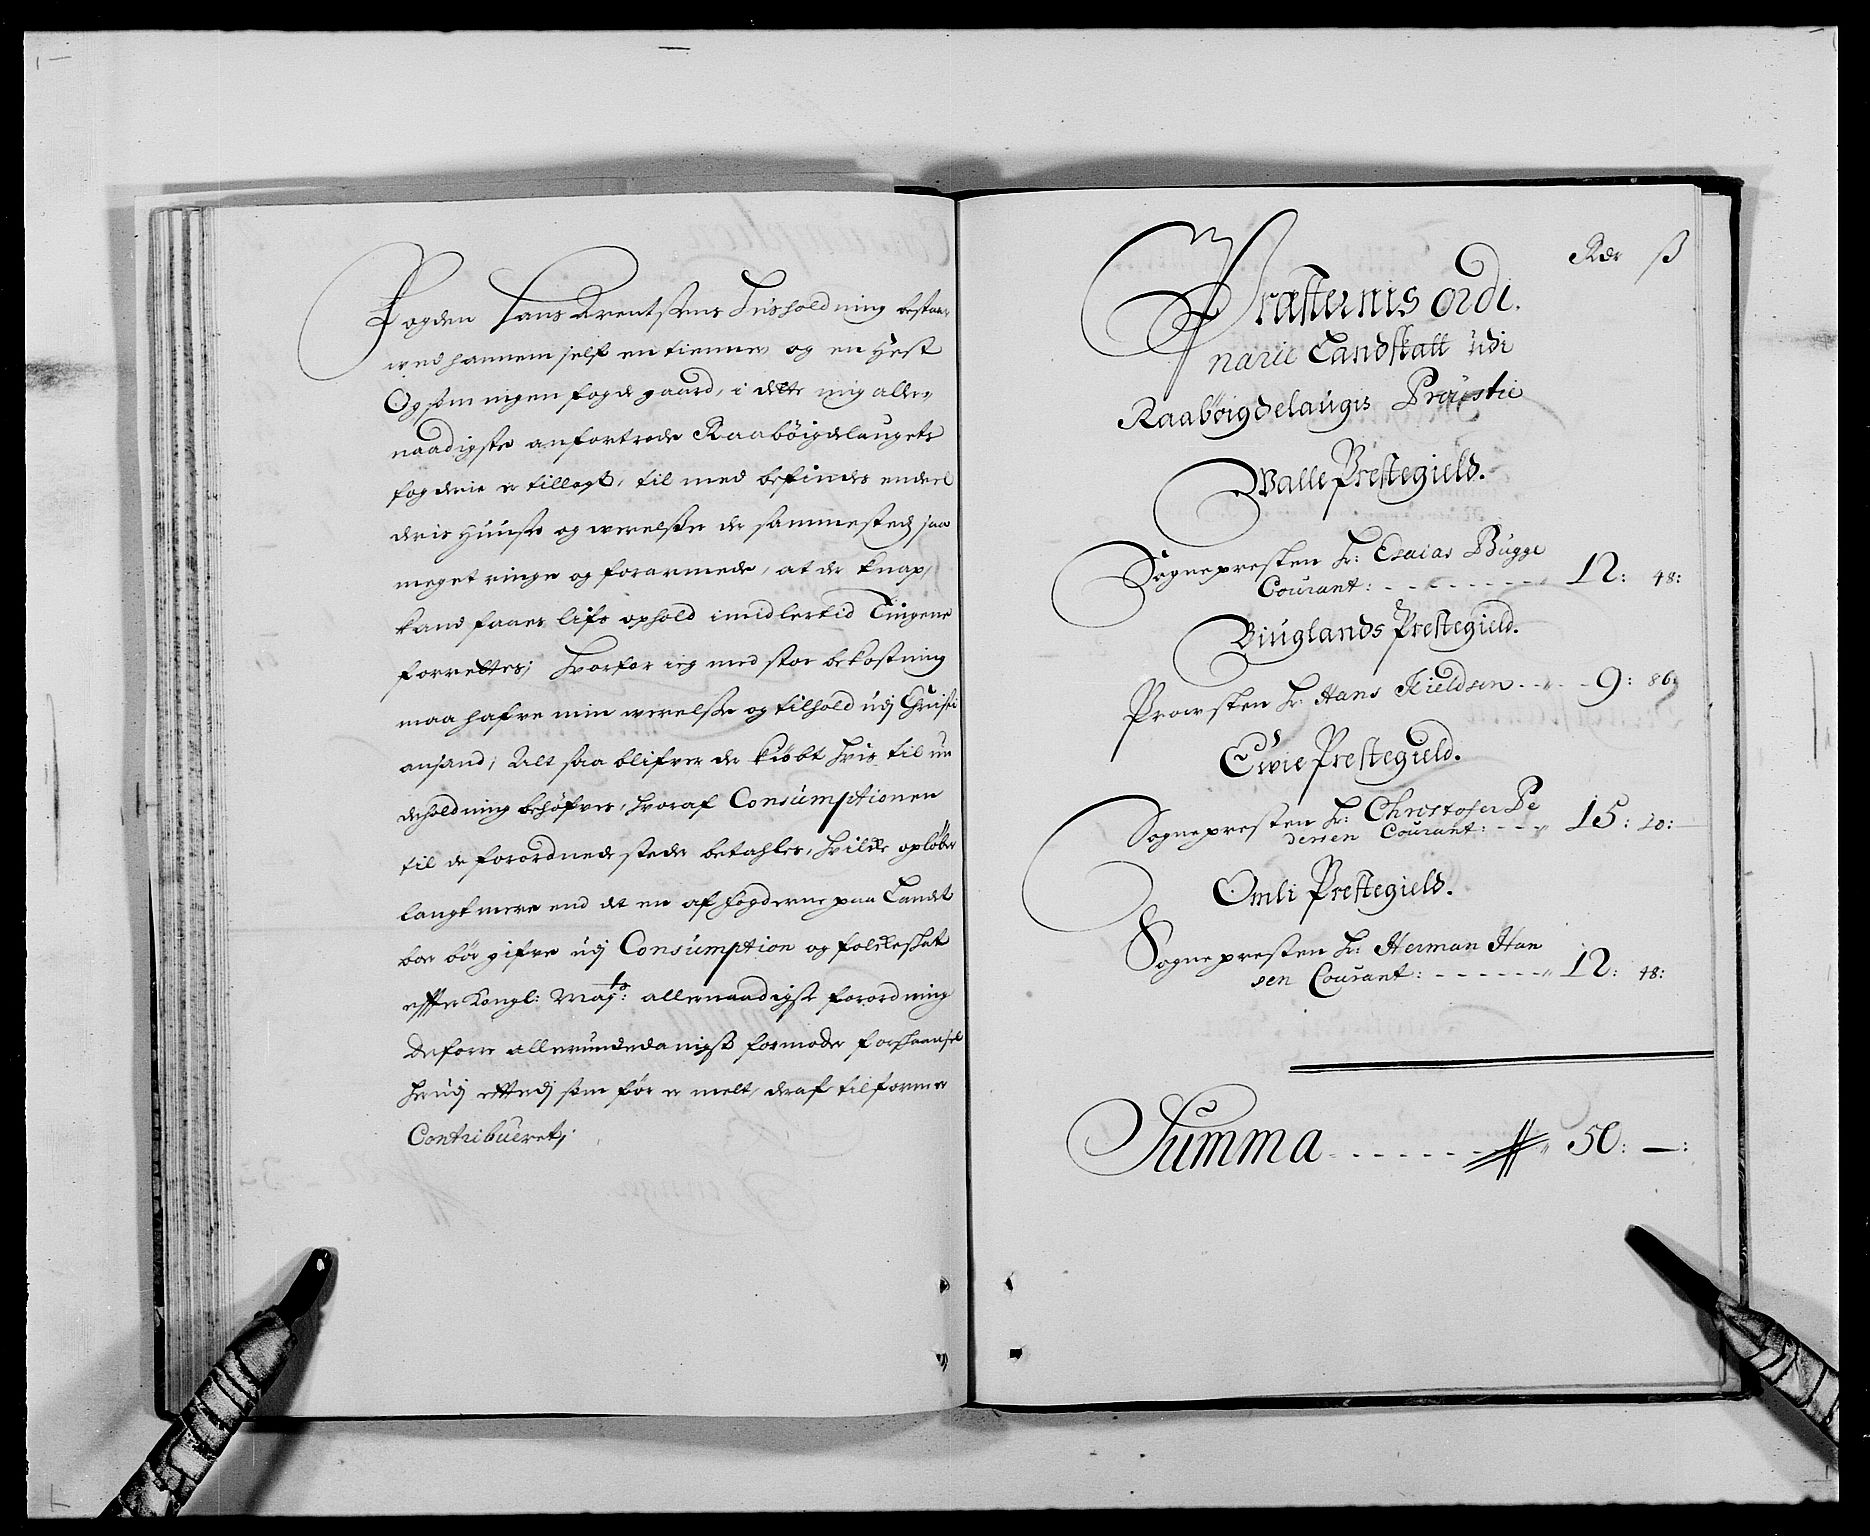 Fogden Hans Arentsens Huusholdning bestaar
ved hannem self en tienner og en Hest
Og som ingen fogde gaard, i dette mig aller-
naadigste anfortrode Raaböigdelaugets
fogderie er tillagt, til med befindes endeel
deris Huuse og werelser der sammesteds saa
meget ringe og forarmede, at der knap,
kand faaes lifs ophold imidlertid Tingene
forrettes; hvorfor ieg med stor bekostning
maa hafve min werelse og tilhold udj Christi
ansand; Alt saa blifver der kiöbt hvis til un
derholdning behöfves, hvoraf Consumptionen
til de forordnede steder betahles, hvilke oplöber
langt mere end det en af fogderne paa Landet
boe bör gifve udj Consumption og folckeskat
effter Kongl: Maj:ts allernaadigste forordning
Deforre allerundedanigst formoder forskaansel
herudj effterdj som för er melt, deraf tilforne er
Contribueret;
Rdr ß
Præsternis ordi.
narie Landskatt udi
Raaböigdelaugis Proustie
Walle Prestegield.
Sognepresten Hr: Esaias Bugge
Courant: - - - - - - - - - 12: 48:
Biuglands Prestegield.
Prowsten Hr: Hans Kieldsen - - - 9: 86
Ewie Prestegield.
Sognepresten Hr: Christofer Pe
dersen Courant: - - - 15: 10:
Omli Prestegield.
Sognepresten Hr: Herman Han
sen Courant: - - - - - - - 12: 48:
Summa - - - - - - 50: —: